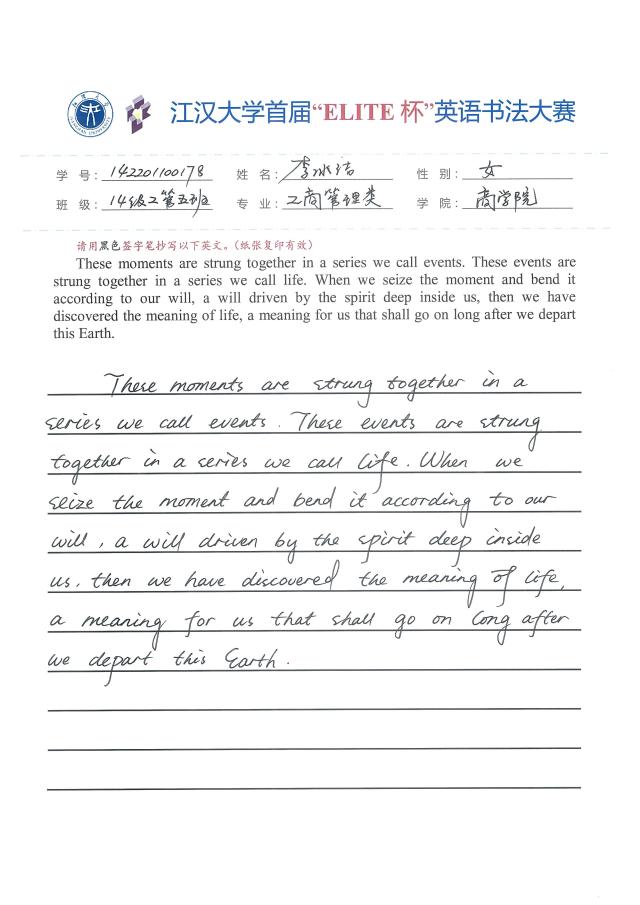 江汉大学首届“ELITE 杯”英语书法大赛
学 号: 142201100178 姓 名: 李冰洁 性 别: 女
班 级: 14级工第五班 专 业: 工商管理类 学 院: 商学院
请用黑色签字笔抄写以下英文。(纸张复印有效)
These moments are strung together in a series we call events. These events are
strung together in a series we call life. When we seize the moment and bend it
according to our will, a will driven by the spirit deep inside us, then we have
discovered the meaning of life, a meaning for us that shall go on long after we depart
this Earth.
These moments are strung together in a
series we call events. These events are strung
together in a series we call life. When we
seize the moment and bend it according to our
will, a will driven by the spirit deep inside
us, then we have discovered the meaning of life,
a meaning for us that shall go on long after
we depart this Earth.